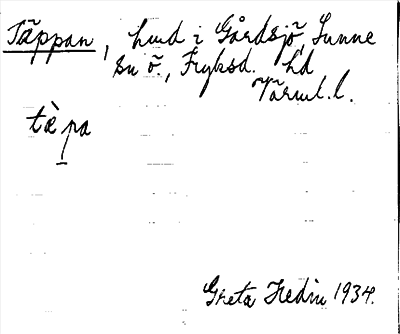 Täppan, hmd i Gårdsjö, Sunne
sn ö., Fryksd. hd
Värml. l.
tὲpa
Greta Hedin 1934.